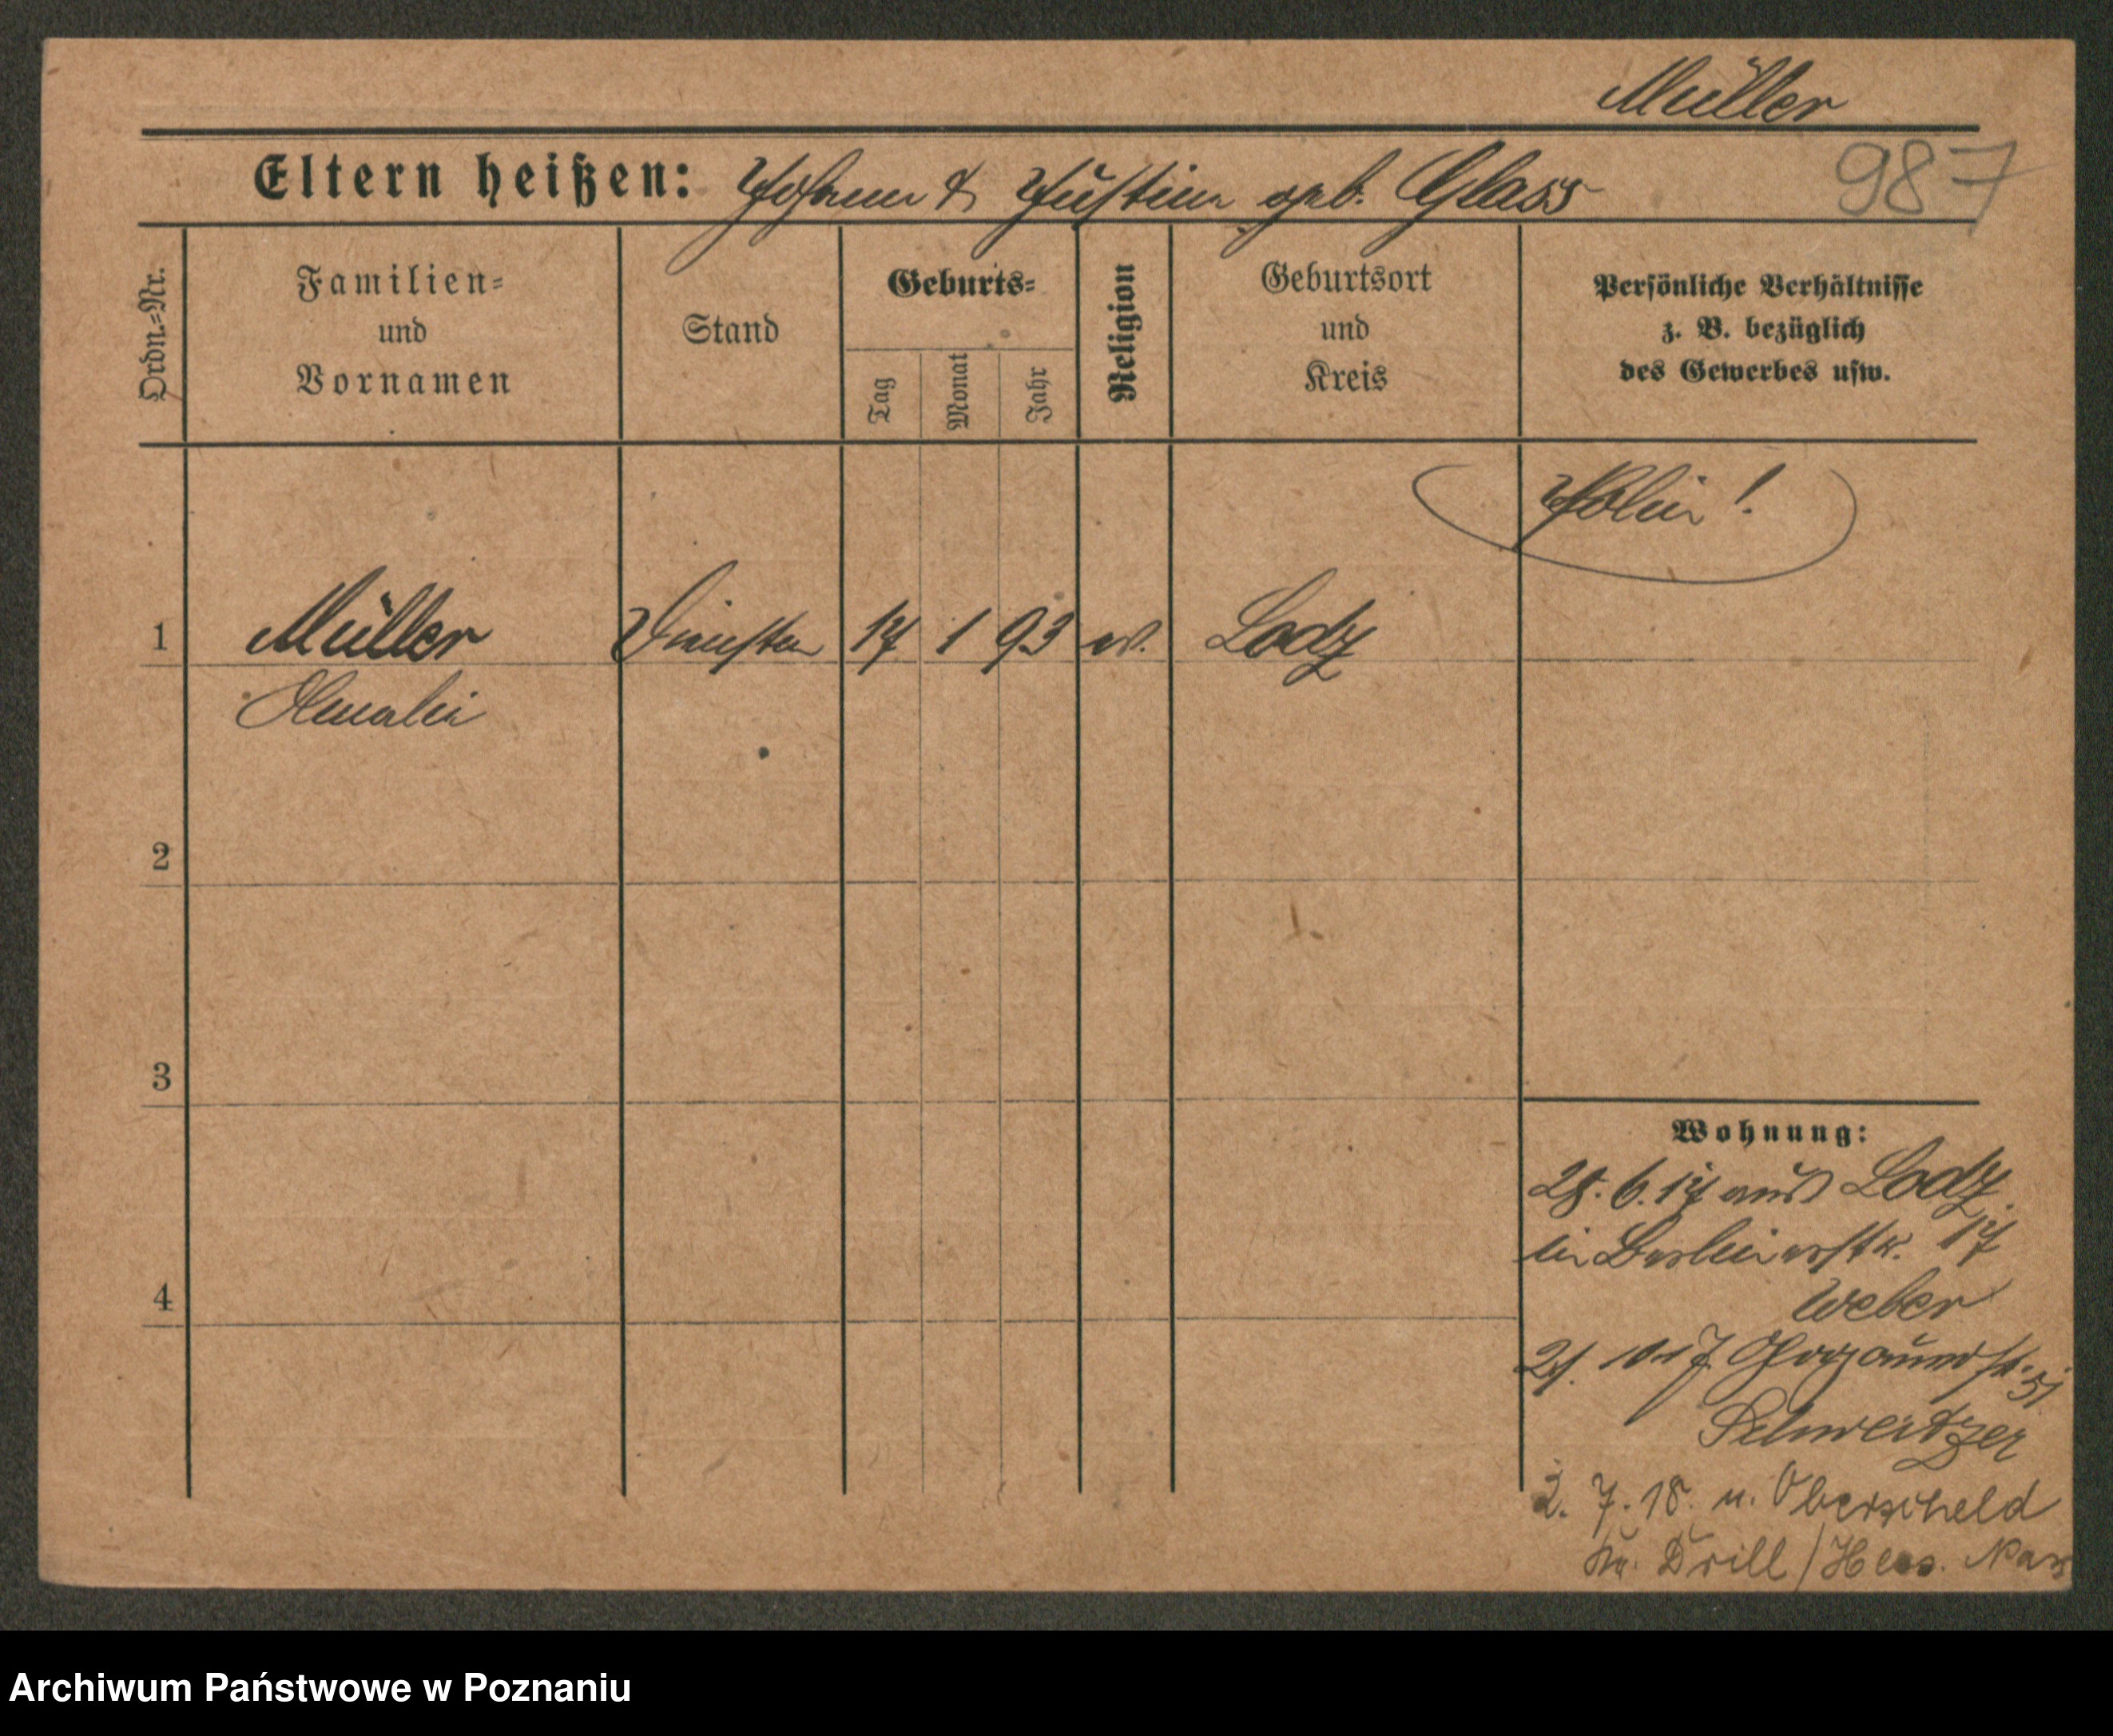 Müller
Eltern heißen: Johann & Justine geb. Glass
987
Ordn.-Nr.
Familien-
und
Vornamen
Stand
Geburts-
Tag
Monat
Jahr
Religion
Geburtsort
und
Kreis
Persönliche Verhältnisse
z. B. bezüglich
des Gewerbes usw.
Polin!
1 Müller 17 1 93 ev. Lodz
Amalie
2
3
4
Wohnung:
28. 6. 17 aus Lodz
in Berlinerstr. 17
Weber
21. 10 17
Schweitzer
2. 7. 18. n. Oberscheld
Kr. Drill / Hess. Nas
Archiwum Państwowe w Poznaniu